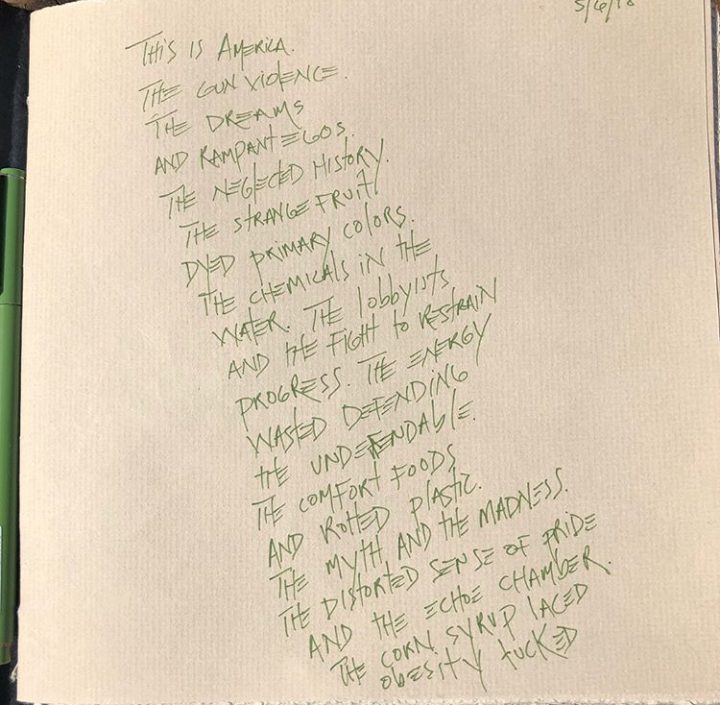 5/6/18
THIS IS AMERICA.
THE GUN VIOLENCE.
THE DREAMS
AND RAMPANT EGOS.
THE NEGLECTED HISTORY.
THE STRANGE FRUIT
DYED PRIMARY COLORS.
THE CHEMICALS IN THE
WATER. THE lobbyists
AND THE FIGHT to RESTRAIN
PROGRESS. THE ENERGY
WASTED DEFENDING
tHE UNDEFENDABLE.
THE COMFORT FOODS
AND ROTTED PLASTIC.
THE MYTH AND THE MADNESS.
THE DISTORTED SENSE OF PRIDE
AND THE ECHOE CHAMBER.
THE CORN SYRUP LACED
obESITY tUCKED